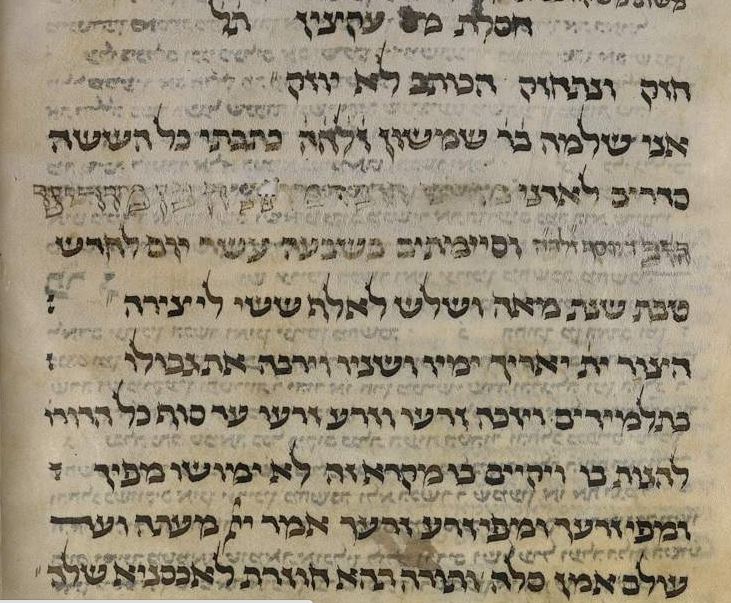 חסלת מס עקצין תל
חזק ונתחזק הכותב לא יוזק
אני שלמה בר שמשון זלהה כתבתי כל הששה
סדרים לאדוני
וסיימתים בשבעה עשר יום לחדש
טבת שנת מאה ושלש לאלף ששי ליצירה
היצור ית יאריך ימיו ושניו וירבה את גבולו
בתלמידים ויזכה זרעו וזרע זרעו עד סוף כל הדורו
להגות בו ויקיים בו מקרא זה לא ימושו מפיך
ומפי זרעך ומפי זרע זרעך אמר יי מעתה ועד
עולם אמן סלה ותורה תהא חוזרת לאכסניא שלך